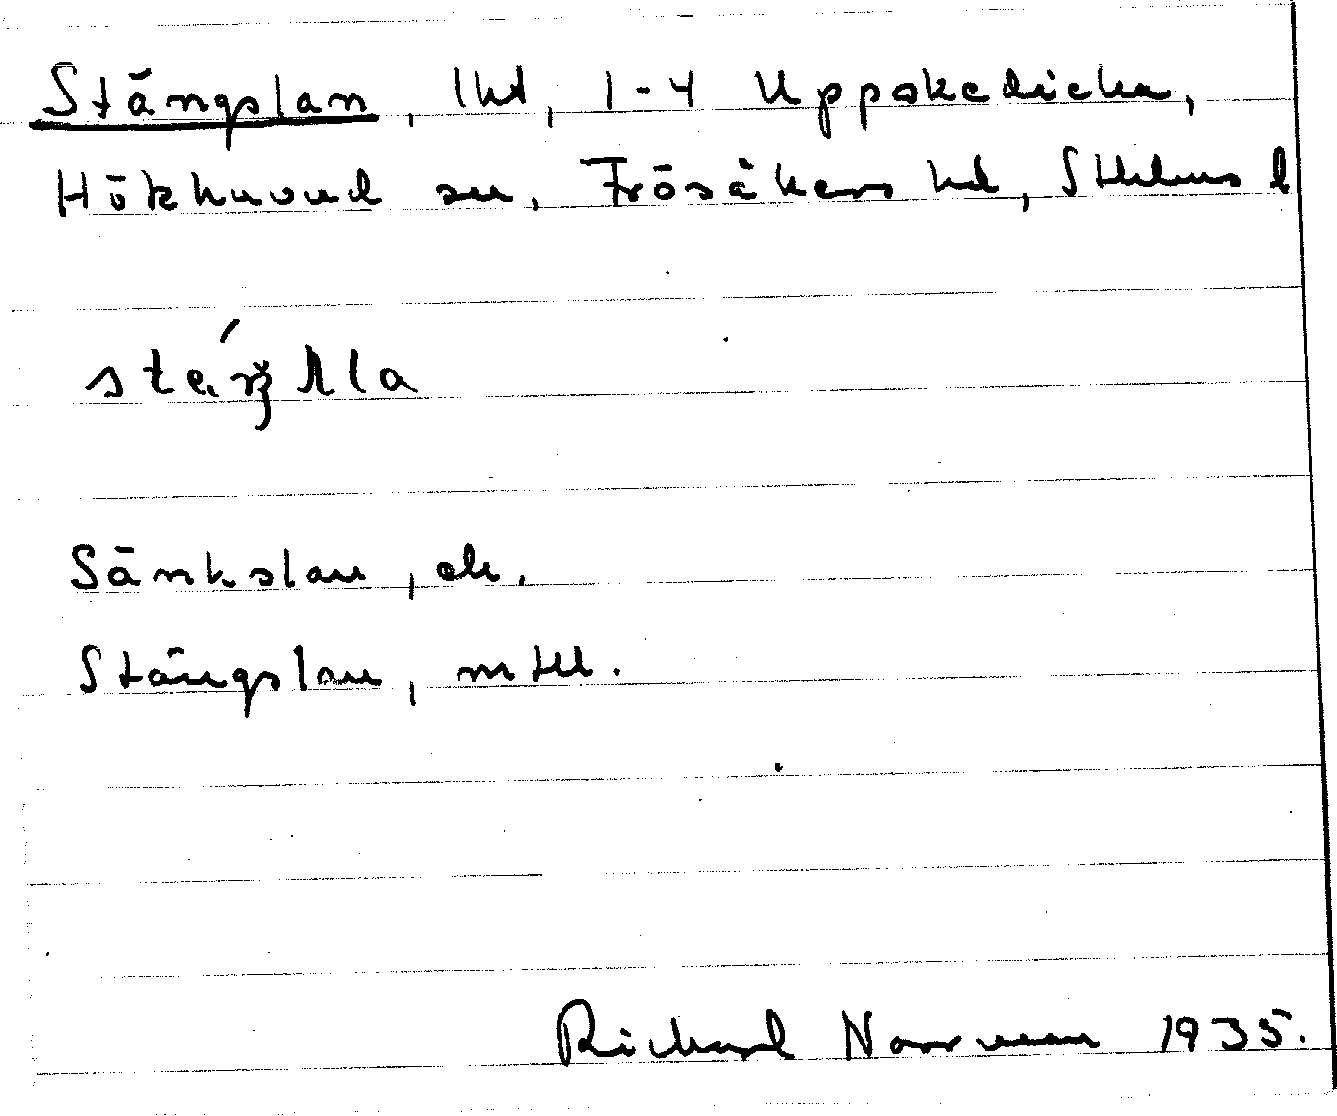 Stängslan, lhd, 1-4 Uppskedicka,
Hökhuvud sn, Frösåkers hd, Sthlms l
Sänkslan, ek.
Stängslan, mtll.
Richard Norrman 1935.